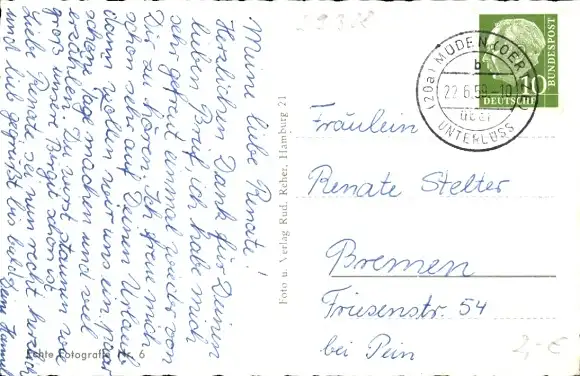 Meine liebe Renate!
Herzlichen Dank für Deinen
lieben Brief, ich habe mich
sehr gefreut einmal etwas von
Dir zu hören. Ich freue mich
schon sehr auf Deinen Urlaub
dann wollen wir uns ein paar
schöne Tage machen und viel
erzählen. Du wirst staunen wie
gross unser Vogel schon ist.
Liebe Renate, sei nun recht herzlich
und lieb gegrüsst bis bald! Deine
Echte Fotografie Nr. 6
Foto u. Verlag Rud. Reher, Hamburg 21
MÜDEN (ÖRTZE)
(20a)
b
22.6.59.-10
über
UNTERLÜSS
DEUTSCHE
BUNDESPOST
10
Fräulein
Renate Stelter
Bremen
Friesenstr. 54
bei Pein
2,-€